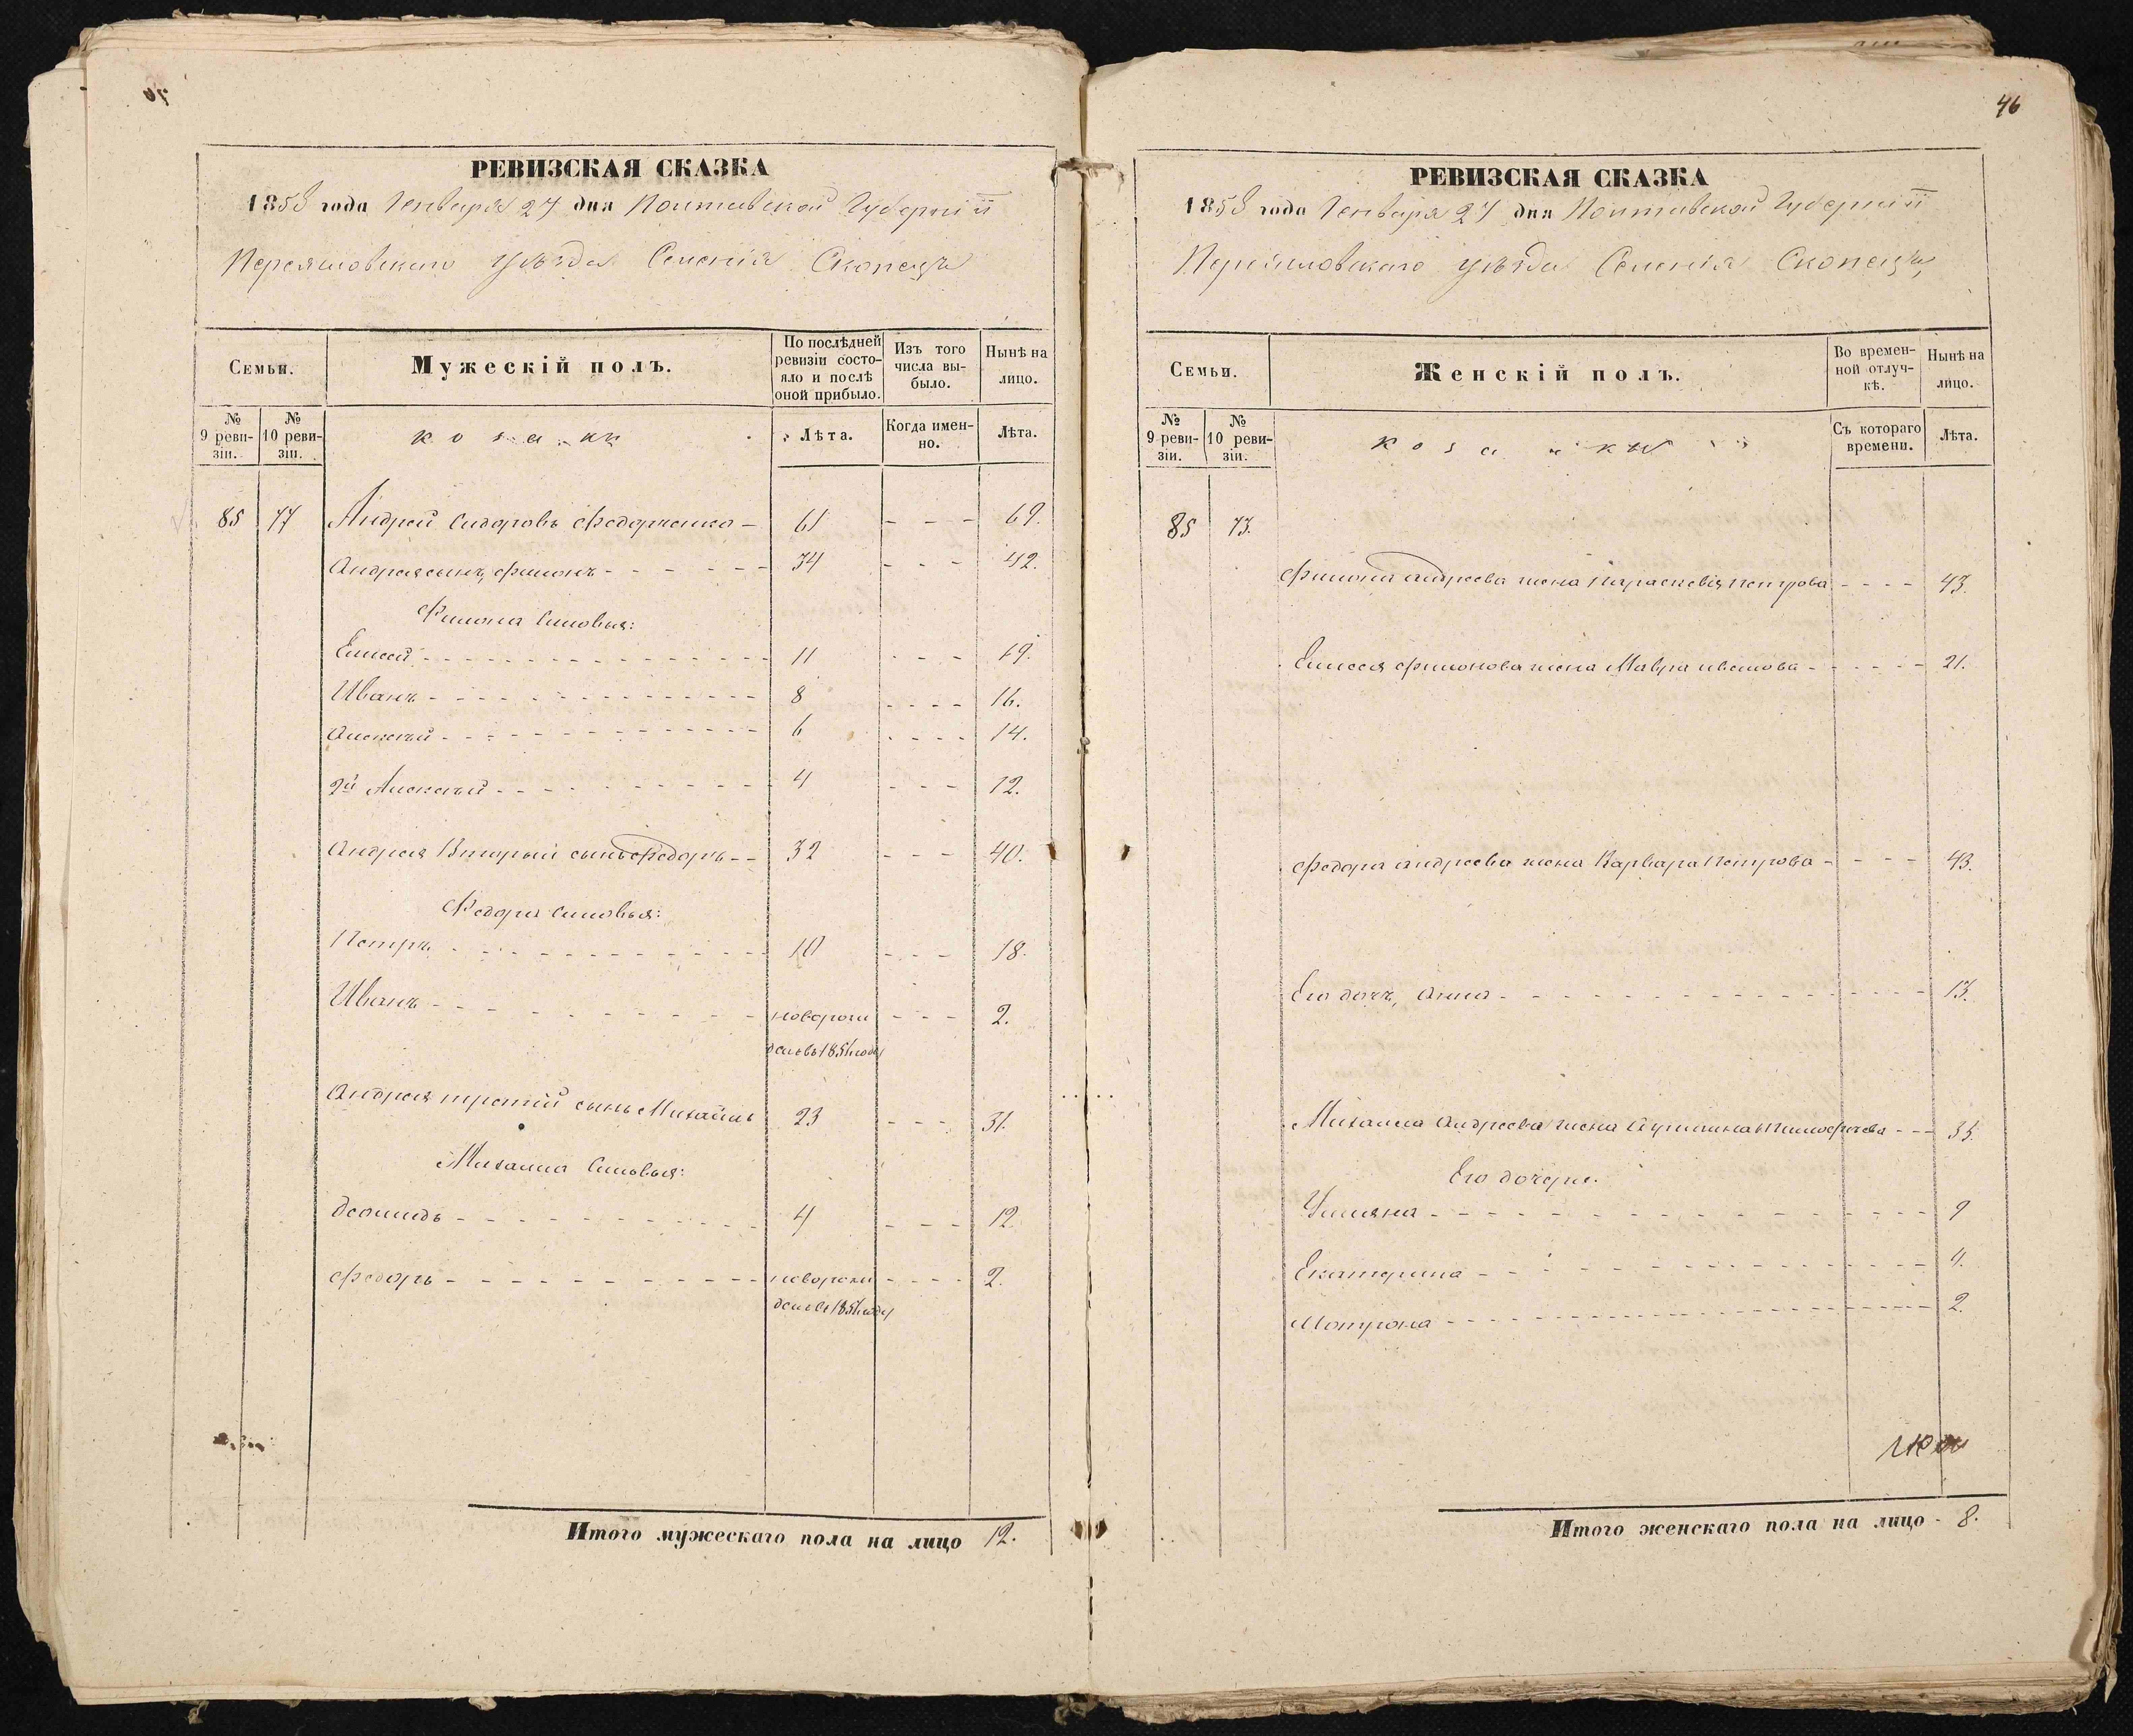 РЕВИЗСКАЯ СКАЗКА
1858 года Генваря 27 дня Полтавской Губерніи
Переяславскаго уѣзда Селенія Скопецъ
Семьи.
Мужескій полъ.
По послѣдней ревизіи состояло и послѣ оной прибыло.
Изъ того числа выбыло.
Ныне на лицо.
№ 9 ревизіи.
№ 10 ревизіи.
козаки
Лѣта.
Когда именно.
Лѣта.
85 77 Андрей Сидоровъ Федорченко - 61 - - - 69.
Андрея сынъ, Филонъ - - - 34 - - - 42.
Филона Сыновья:
Елисей - - - 11 - - - 19.
Иванъ - - - 8 - - - 16.
Алексей - - - 6 - - - 14.
2й Алексей - - - 4 - - - 12.
Андрея Вторый сынъ Федоръ - - 32 - - - 40.
Федора Сыновья:
Петръ - - - 10 - - - 18.
Иванъ - - - новорож - - - 2.
денъ въ 1856 году
Андрея третій сынъ Михайлъ 23 - - - 31.
Михаила Сыновья:
Леонидъ - - - 4 - - - 12.
Федоръ - - - новорож - - - 2.
денъ въ 1856 году
Итого мужескаго пола на лицо 12.
46
РЕВИЗСКАЯ СКАЗКА
1858 года Генваря 27 дня Полтавской Губерніи
Переяславскаго уѣзда Селенія Скопецъ
Семьи.
Женскій полъ.
Во временной отлучкѣ.
Нынѣ на лицо.
№ 9 ревизіи.
№ 10 ревизіи.
Съ котораго времени.
Лѣта.
85 73.
Филона Андреева жена Параскевія Петрова - - - - 43.
Елисея Филонова жена Мавра Иванова - - - 21.
Федора Андреева жена Варвара Петрова - - - 43.
Его дочь, Анна - - - 13.
Михаила Андреева жена Акулина Тимофеева - - - 35.
Его дочери.
Ульяна - - - 9
Екатерина - - - 4.
Мотрона - - - 2.
Итого женскаго пола на лицо - 8.